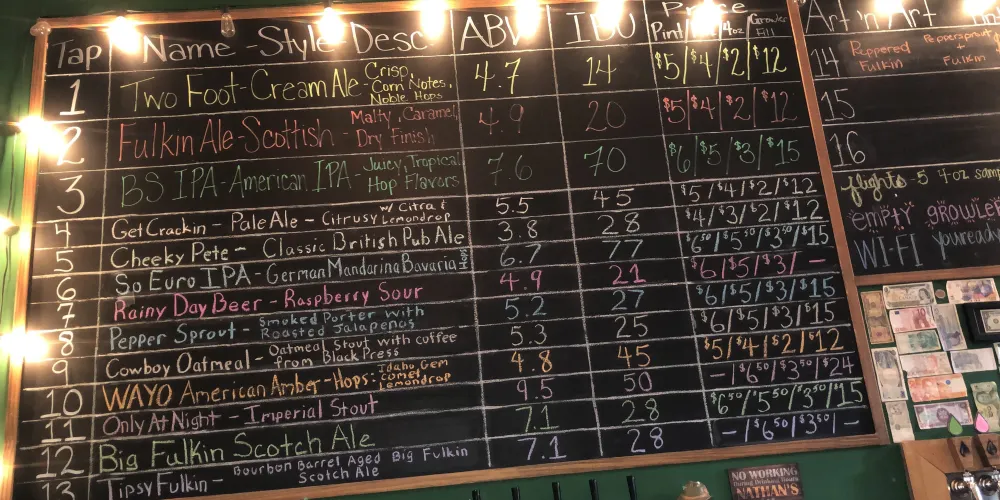 Tap Name - Style - Desc ABV IBU Price
Pint / / 4oz Growler Fill
1 Two Foot - Cream Ale - Crisp, Corn Notes, Noble Hops 4.7 14 $5/$4/$2/$12
2 Fulkin Ale - Scottish - Malty, Caramel, Dry Finish 4.9 20 $5/$4/$2/$12
3 BS IPA - American IPA - Juicy, Tropical Hop Flavors 7.6 70 $6/$5/$3/$15
4 Get Crackin - Pale Ale - Citrusy w/ Citra & Lemondrop 5.5 45 $5/$4/$2/$12
5 Cheeky Pete - Classic British Pub Ale 3.8 28 $4/$3/$2/$12
6 So Euro IPA - German Mandarina Bavaria Hops 6.7 77 $6.50/$5.50/$3.50/$15
7 Rainy Day Beer - Raspberry Sour 4.9 21 $6/$5/$3/-
8 Pepper Sprout - Smoked Porter with Roasted Jalapenos 5.2 27 $6/$5/$3/$15
9 Cowboy Oatmeal - Oatmeal Stout with coffee from Black Press 5.3 25 $6/$5/$3/$15
10 WAYO American Amber - Hops: Idaho Gem Comet Lemondrop 4.8 45 $5/$4/$2/$12
11 Only At Night - Imperial Stout 9.5 50 -/$6.50/$3.50/$24
12 Big Fulkin Scotch Ale 7.1 28 $6.50/$5.50/$3.50/$15
13 Tipsy Fulkin - Bourbon Barrel Aged Big Fulkin Scotch Ale 7.1 28 -/$6.50/$3.50/-
Art 'n Art
14 Peppered Fulkin Peppersprout + Fulkin
15
16
flights - 5 4oz
empty growler
WI-FI youready
NO WORKING
NATHAN'S